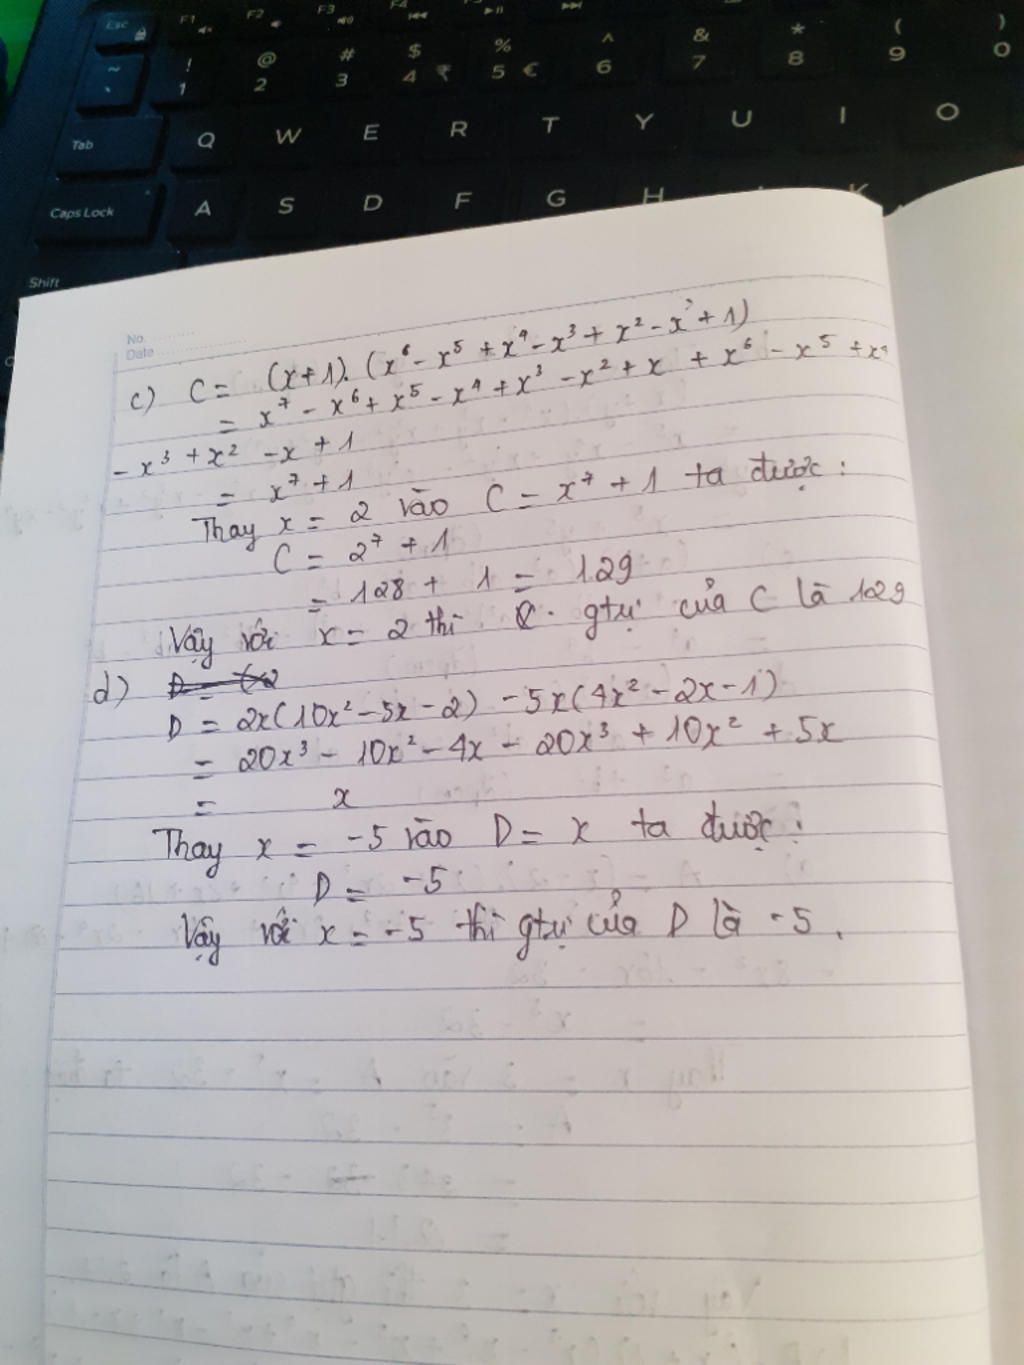 Esc F1 F2 F3 F4
~ ` ! 1 @ 2 # 3 $ 4 ₹ % 5 € ^ 6 & 7 * 8 ( 9 ) 0
Tab Q W E R T Y U I O
Caps Lock A S D F G H K
Shift
No.
Date
c) C = (x+1).(x⁶ - x⁵ + x⁴ - x³ + x² - x + 1)
= x⁷ - x⁶ + x⁵ - x⁴ + x³ - x² + x + x⁶ - x⁵ + x⁴
- x³ + x² - x + 1
= x⁷ + 1
Thay x = 2 vào C = x⁷ + 1 ta được :
C = 2⁷ + 1
= 128 + 1 = 129
Vậy với x = 2 thì gtrị của C là 129
d)
D = 2x(10x² - 5x - 2) - 5x(4x² - 2x - 1)
= 20x³ - 10x² - 4x - 20x³ + 10x² + 5x
= x
Thay x = -5 vào D = x ta được :
D = -5
Vậy với x = -5 thì gtrị của D là -5.